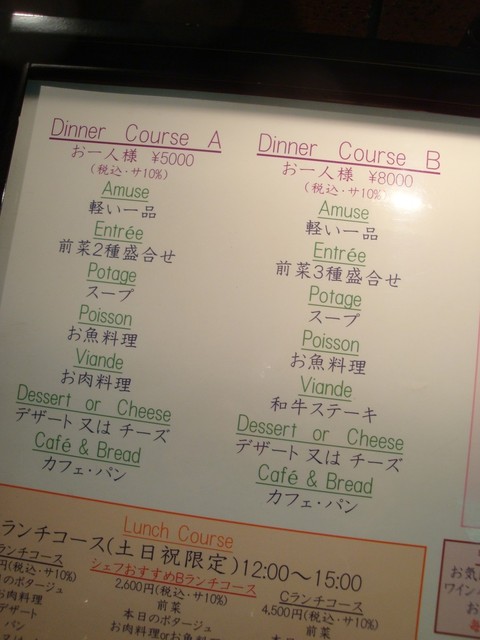 Dinner Course A
お一人様 ¥5000
(税込・サ10%)
Amuse
軽い一品
Entrée
前菜2種盛合せ
Potage
スープ
Poisson
お魚料理
Viande
お肉料理
Dessert or Cheese
デザート又は チーズ
Café & Bread
カフェ・パン
Dinner Course B
お一人様 ¥8000
(税込・サ10%)
Amuse
軽い一品
Entrée
前菜3種盛合せ
Potage
スープ
Poisson
お魚料理
Viande
和牛ステーキ
Dessert or Cheese
デザート又は チーズ
Café & Bread
カフェ・パン
Lunch Course
ランチコース(土日祝限定)12:00～15:00
ランチコース
円(税込・サ10%)
のポタージュ
お肉料理
デザート
パン
シェフおすすめBランチコース
2,600円(税込・サ10%)
前菜
本日のポタージュ
お肉料理orお魚料
Cランチコース
4,500円(税込・サ10%)
前菜
本日の
お気
ワイン
お